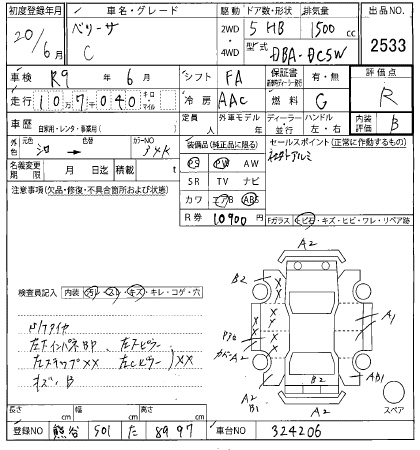 初度登録年月 車名・グレード 駆動 ドア数・形状 排気量 出品NO.
20/6月 ベリーサ C 2WD・4WD 5 HB 1500cc
型式 DBA-DC5W 2533
車検 R9年6月 シフト FA 保証書 有・無 評価点
走行 107040 キロ・マイル 冷房 AAC 燃料 G R
車歴 自家用・レンタ・事業用( ) 定員 人 外車モデル 年 ディーラー・並行 ハンドル 左・右 内装評価 B
外色 元色 シロ 色替 カラーNO 34K 装備品(純正品に限る) セールスポイント(正常に作動するもの)
PS PW AW
名義変更期限 月 日迄 積載 t SR TV ナビ
注意事項(欠品・修復・不具合箇所および状態) カワ エアB ABS
R券 10900円 Fガラス トビ石・キズ・ヒビ・ワレ・リペア跡
A2
B2
検査員記入 内装 汚レ・スレ・キズ・キレ・コゲ・穴
A1
A2
B2
A2
B1
A2
AB1
スペア
XX
キズ、B
長さ cm 幅 cm 高さ cm
登録NO 熊谷 501 た 8997 車台NO 324206